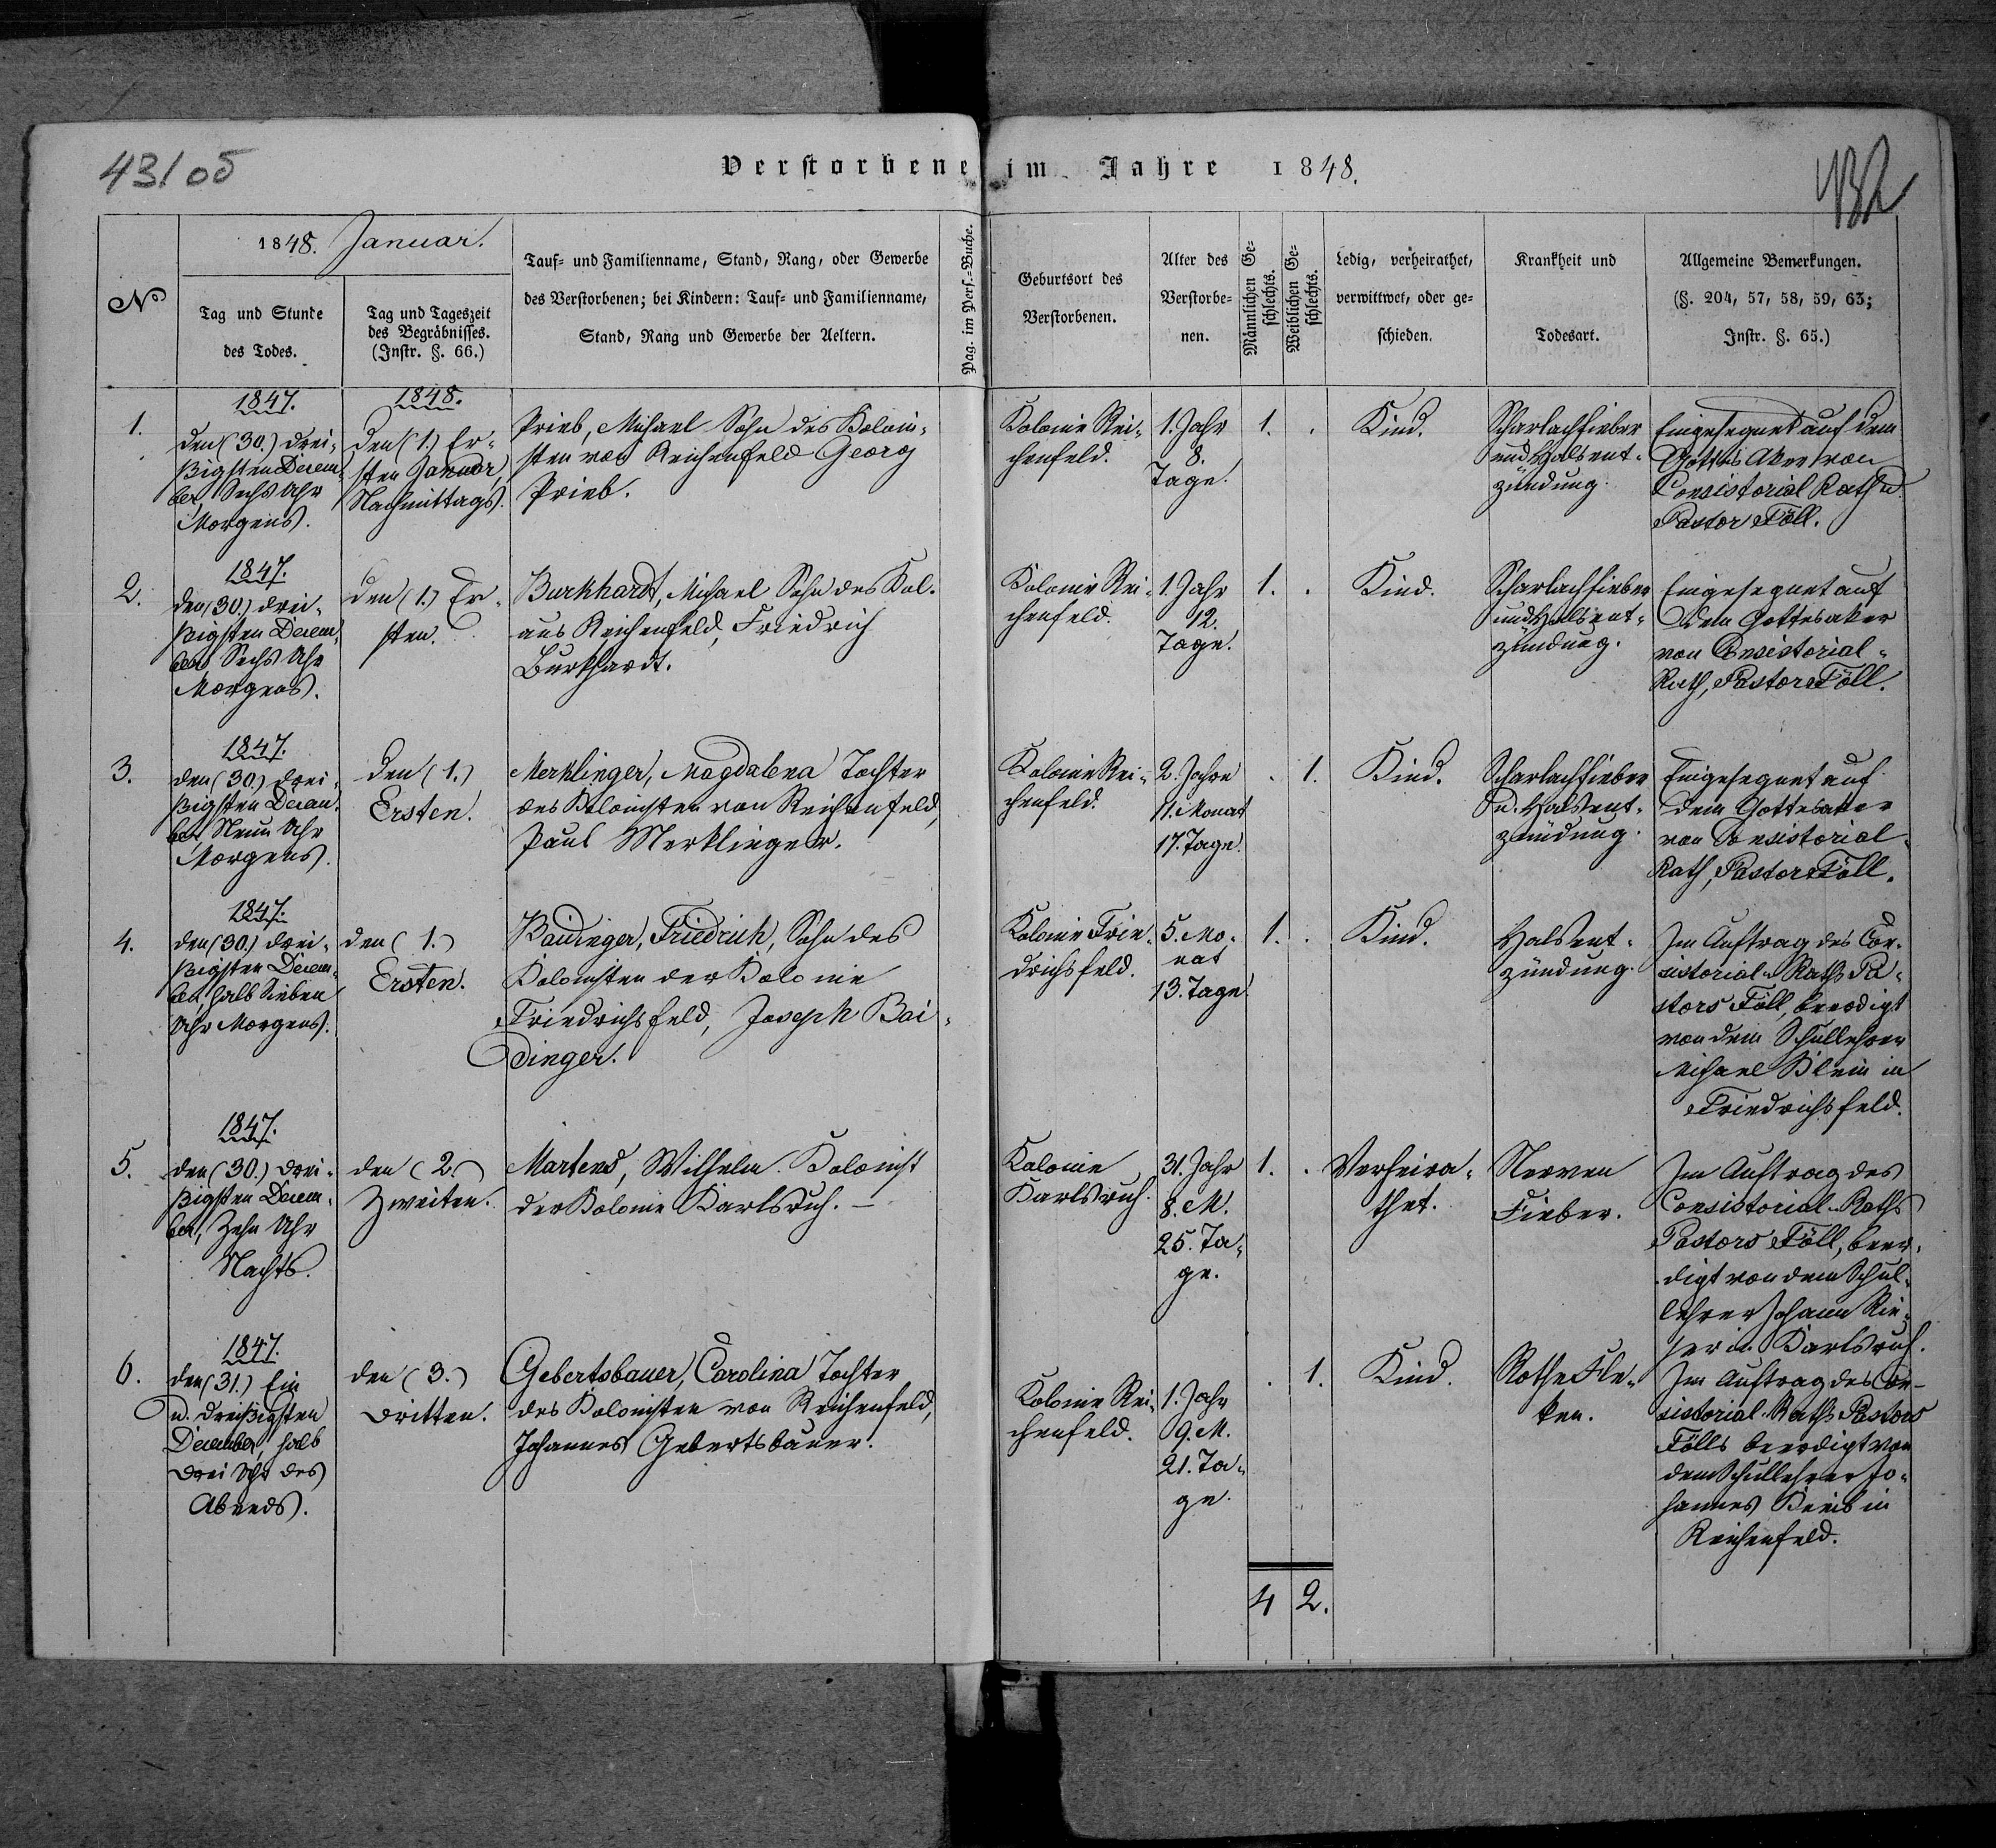 43105
Verstorbene im Jahre 1848.
432
1848. Januar.
No
Tag und Stunde
des Todes.
Tag und Tageszeit
des Begräbnisses.
(Instr. §. 66.)
Tauf- und Familienname, Stand, Rang, oder Gewerbe
des Verstorbenen; bei Kindern: Tauf- und Familienname,
Stand, Rang und Gewerbe der Aeltern.
Pag. im Pers.-Buche.
Geburtsort des
Verstorbenen.
Alter des
Verstorbe-
nen.
Männlichen Ge-
schlechts.
Weiblichen Ge-
schlechts.
Ledig, verheirathet,
verwittwet, oder ge-
schieden.
Krankheit und
Todesart.
Allgemeine Bemerkungen.
(§. 204, 57, 58, 59, 63;
Instr. §. 65.)
1.
1847.
den (30.) drei-
ßigsten Decem-
ber, Sechs Uhr
Morgens.
1848.
den (1.) Er-
sten Januar,
Nachmittags.
Prieb, Michael Sohn des Koloni-
sten von Reichenfeld Georg
Prieb.
Kolonie Rei-
chenfeld.
1. Jahr
8.
Tage.
1.
.
Kind.
Scharlachfieber
und Halsent-
zündung.
Eingesegnet auf dem
Gottes Aker von
Consistorial Rath u.
Pastor Föll.
2.
1847.
den (30.) drei-
ßigsten Decem-
ber Sechs Uhr
Morgens.
den (1.) Er-
sten.
Burkhardt, Michael Sohn des Kol.
aus Reichenfeld, Friedrich
Burkhardt.
Kolonie Rei-
chenfeld.
1. Jahr
12.
Tage.
1.
.
Kind.
Scharlachfieber
und Halsent-
zündung.
Eingesegnet auf
dem Gottesaker
von Consistorial-
Rath, Pastor Föll.
3.
1847.
den (30.) drei-
ßigsten Decem-
ber, Neun Uhr
Morgens.
den (1.)
Ersten.
Merklinger, Magdalena Tochter
des Kolonisten von Reichenfeld,
Paul Merklinger.
Kolonie Rei-
chenfeld.
2. Jahre
11. Monat
17. Tage.
.
1.
Kind.
Scharlachfieber
u. Halsent-
zündung.
Eingesegnet auf
dem Gottesaker
von Consistorial-
Rath, Pastor Föll.
4.
1847.
den (30.) drei-
ßigsten Decem-
ber, halb Sieben
Uhr Morgens.
den (1.)
Ersten.
Baidinger, Friedrich, Sohn des
Kolonisten der Kolonie
Friedrichsfeld, Joseph Bai-
dinger.
Kolonie Frie-
drichsfeld.
5. Mo-
nat
13. Tage.
1.
.
Kind.
Halsent-
zündung.
Im Auftrag des Con-
sistorial-Raths Pa-
stors Föll, beerdigt
von dem Schullehrer
Michael Klein in
Friedrichsfeld.
5.
1847.
den (30.) drei-
ßigsten Decem-
ber, Zehn Uhr
Nachts.
den (2.)
Zweiten.
Martens, Wilhelm. Kolonist
der Kolonie Karlsruh. –
Kolonie
Karlsruh.
31. Jahr
8. M.
25. Ta-
ge.
1.
.
Verheira-
thet.
Nerven
Fieber.
Im Auftrag des
Consistorial-Raths
Pastors Föll, beer-
digt von dem Schul-
lehrer Johann Rie-
ser in Karlsruh.
6.
1847.
den (31.) Ein
u. dreißigsten
December, halb
drei Uhr des
Abends.
den (3.)
dritten.
Gebertsbauer, Carolina Tochter
des Kolonisten von Reichenfeld,
Johannes Gebertsbauer.
Kolonie Rei-
chenfeld.
1. Jahr
9. M.
21. Ta-
ge.
.
1.
Kind.
Rothe Fle-
ken.
Im Auftrag des Con-
sistorial-Raths Pastors
Fölls beerdigt von
dem Schullehrer Jo-
hannes in
Reichenfeld.
4
2.